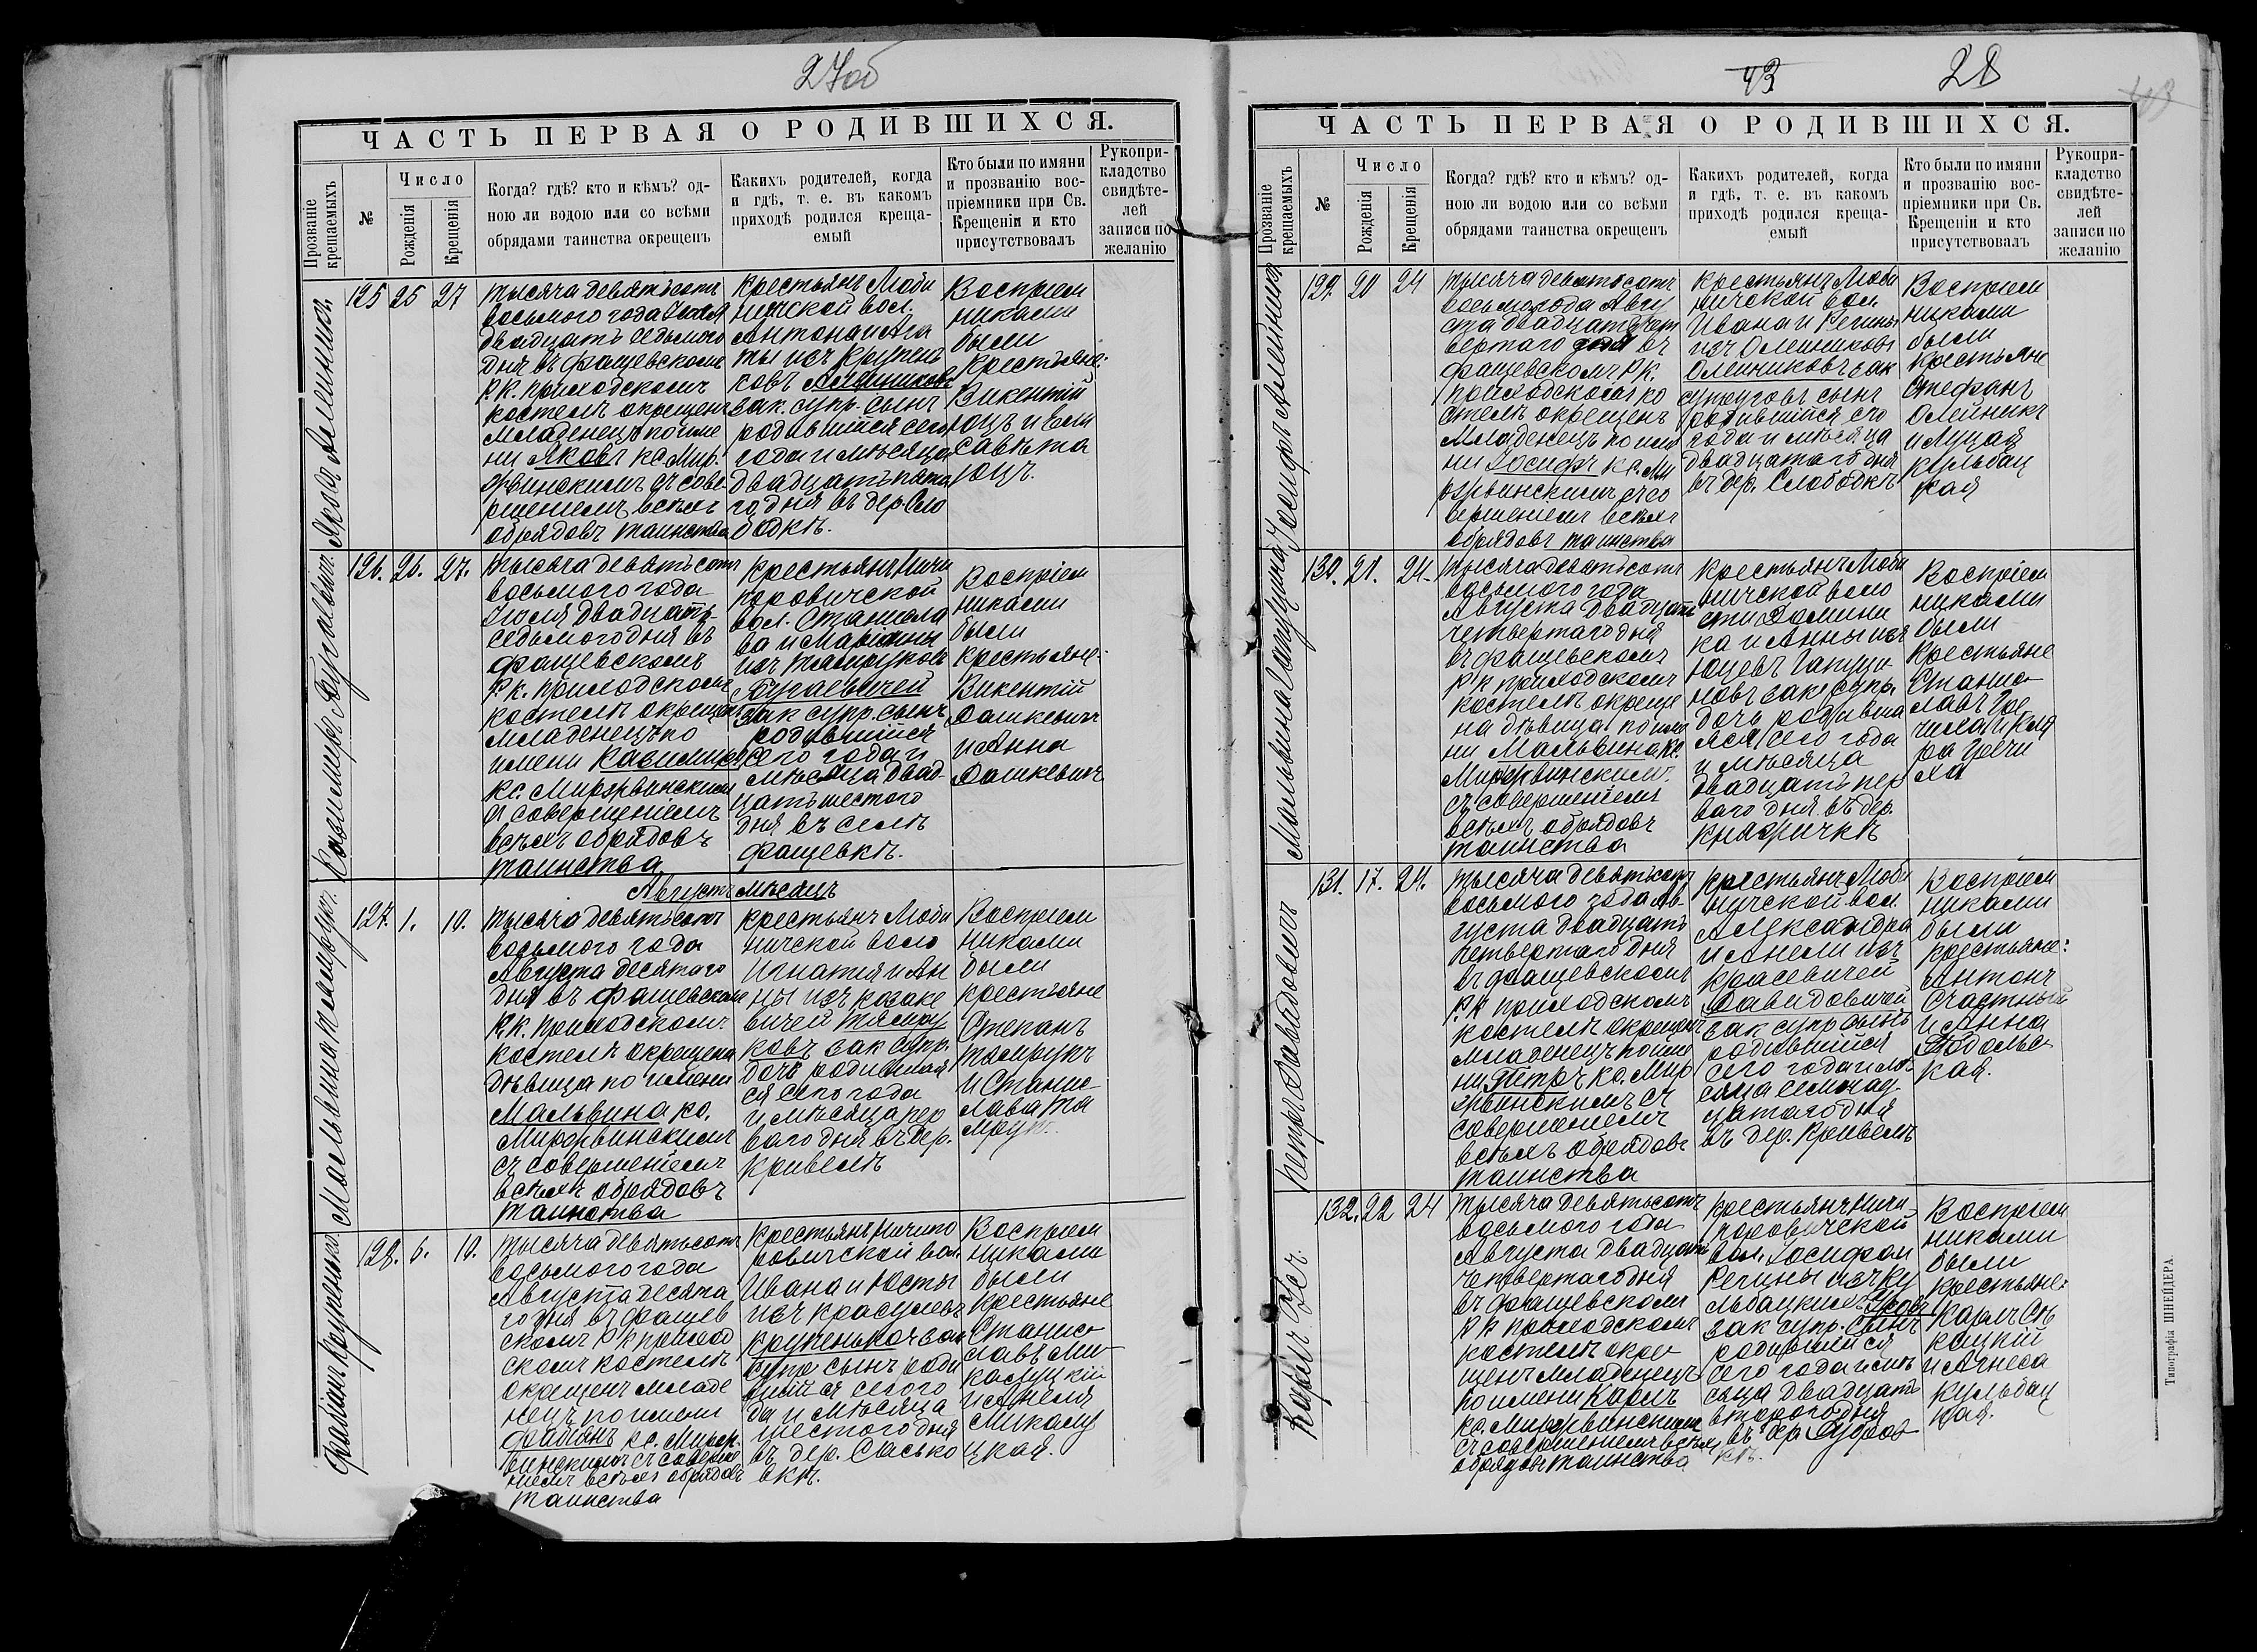 27об
ЧАСТЬ ПЕРВАЯ О РОДИВШИХСЯ.
Прозваніе крещаемыхъ
№
Число
Рожденія
Крещенія
Когда? гдѣ? кто и кѣмъ? од-
ною ли водою или со всѣми
обрядами таинства окрещенъ
Какихъ родителей, когда
и гдѣ, т. е. въ какомъ
приходѣ родился креща-
емый
Кто были по имяни
и прозванію вос-
пріемники при Св.
Крещеніи и кто
присутствовалъ
Рукопри-
кладство
свидѣте-
лей
записи по
желанію
125 25 27
тысяча девятьсотъ
восьмого года Іюля
двадцать седьмого
дня въ Фащевскомъ
Р. К. приходскомъ
костелѣ окрещенъ
младенецъ по име
ни Яковъ кс. Мир.
съ сове
ршеніемъ всѣхъ
обрядовъ таинства
крестьянъ Люби
ничской вол.
Антона и Ага
ты изъ
зак. супр. сынъ
родившійся сего
года и мѣсяца
двадцать пята
го дня въ дер. Сло
бодкѣ.
Воспріем
никами
были
крестьяне:
Викентій
Юцъ и Ели
савѣта
Юцъ.
126. 26. 27.
тысяча девятьсотъ
восьмого года
Іюля двадцать
седьмого дня въ
Фащевскомъ
Р. К. приходскомъ
костелѣ окрещенъ
младенецъ по
имени Казимиръ
кс.
съ совершеніемъ
всѣхъ обрядовъ
таинства
крестьянъ Ничи
поровичской
вол. Станисла
ва и Маріанны
изъ Тамруковъ
зак супр. сынъ
родившійся
сего года и
мѣсяца двад-
цать шестого
дня въ селѣ
Фащевкѣ.
Воспріем
никами
были
крестьяне:
Викентій
Дашкевичъ
и Анна
Дашкевичъ
Августъ мѣсяцъ
127. 1. 10.
тысяча девятьсотъ
восьмого года
Августа десятаго
дня въ Фащевскомъ
Р.К. приходскомъ
костелѣ окрещена
дѣвица по имени
Мальвина кс.
съ совершеніемъ
всѣхъ обрядовъ
таинства
крестьянъ Люби
ничской воло
Игнатія и Ан
ны изъ Казаке
вичей Тамру
ковъ зак супр.
дочь родившая
ся сего года
и мѣсяца пер
ваго дня въ дер.
Кривелѣ
Воспріем
никами
были
крестьяне
Степанъ
Тамрукъ
и Станис
лава Та
мрукъ.
128. 6. 10.
тысяча девятьсотъ
восьмого года
Августа десята
го дня въ Фащев
скомъ Р К приход
скомъ костелѣ
окрещенъ младе
нецъ по имени
съ соверше
ніемъ всѣхъ обрядовъ
таинства
крестьянъ Ничипо
ровичской вол.
Ивана и Юсты
изъ
зак
супр сынъ роди
вшійся сего го
да и мѣсяца
шестого дня
въ дер. Сасько
вкѣ.
Воспріем
никами
были
крестьяне
Станис
лавъ Ми
калуцкій
и Анеля
Микалу
цкая.
43 28
ЧАСТЬ ПЕРВАЯ О РОДИВШИХСЯ.
Прозваніе крещаемыхъ
№
Число
Рожденія
Крещенія
Когда? гдѣ? кто и кѣмъ? од-
ною ли водою или со всѣми
обрядами таинства окрещенъ
Какихъ родителей, когда
и гдѣ, т. е. въ какомъ
приходѣ родился креща-
емый
Кто были по имяни
и прозванію вос-
пріемники при Св.
Крещеніи и кто
присутствовалъ
Рукопри-
кладство
свидѣте-
лей
записи по
желанію
129. 20 24
тысяча девятьсотъ
восьмого года Авгу
ста двадцать чет
вертаго дня въ
Фащевскомъ Р К.
приходскомъ ко
стелѣ окрещенъ
младенецъ по име
ни Іосифъ кс.
съ со
вершеніемъ всѣхъ
обрядовъ таинства
крестьянъ Люби
ничской вол.
Ивана и Регины
изъ Олейниковъ
Олейниковъ зак
супруговъ сынъ
родившійся сего
года и мѣсяца
двадцатого дня
въ дер. Слободкѣ
Воспріем
никами
были
крестьяне
Стефанъ
Олейникъ
и Луція
Кульбац
кая
130. 21. 24.
тысяча девятьсотъ
восьмого года
Августа двадцать
четвертаго дня
въ Фащевскомъ
Р К приходскомъ
костелѣ окреще
на дѣвица по име
ни Мальвина кс.
съ совершеніемъ
всѣхъ обрядовъ
таинства
крестьянъ Люби
ничской воло
сти Домини
ка и Анны изъ
зак супр
дочь родивша
яся сего года
и мѣсяца
двадцать пер
ваго дня въ дер.
Воспріем
никами
были
крестьяне
Станис
лавъ Гре
чиха и Кла
ра Гречи
ха
131. 17. 24.
тысяча девятьсотъ
восьмого года Ав-
густа двадцать
четвертаго дня
въ Фащевскомъ
Р.К приходскомъ
костелѣ окрещенъ
младенецъ по име
ни Петръ кс. Мир
съ
совершеніемъ
всѣхъ обрядовъ
таинства
крестьянъ Люби
ничской вол.
Александра
и Анели изъ
Красевичей
Давидовичей
зак супр сынъ
родившійся
сего года и мѣ
сяца семнад-
цатаго дня
въ дер. Кривелѣ
Воспріем
никами
были
крестьяне:
Антонъ
Счастный
и Анна
Подольс
кая.
132. 22 24
тысяча девятьсотъ
восьмого года
Августа двадцать
четвертаго дня
въ Фащевскомъ
Р К приходскомъ
костелѣ окре
щенъ младенецъ
по имени Карлъ
кс.
съ совершеніемъ всѣхъ
обрядовъ таинства
крестьянъ Ничи
поровичской
вол. Іосифа и
Регины изъ Ку
льбацкихъ
зак супр. сынъ
родившійся
сего года и мѣ
сяца двадцать
второго дня
въ дер Дубров
кѣ.
Воспріем
никами
были
крестьяне:
Карлъ Сѣ
коцкій
и Агнеса
Кульбац
кая.
Типографія ШНЕЙДЕРА